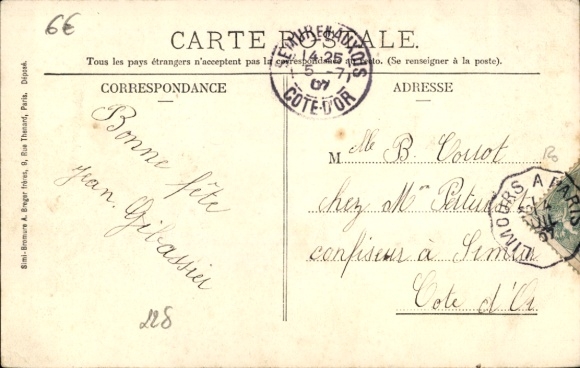 6€
CARTE POSTALE.
Tous les pays étrangers n'acceptent pas la correspondance au recto. (Se renseigner à la poste).
CORRESPONDANCE
ADRESSE
SEMUR-EN-AUXOIS
14 25
5 -7
07
COTE-D'OR
Bonne fête
Jean Gibassier
228
Melle B.
chez Mr
confiseur à Semur
Cote d'Or
A PARIS
Simi-Bromure A. Breger frères, 9, Rue Thenard, Paris. Déposé.